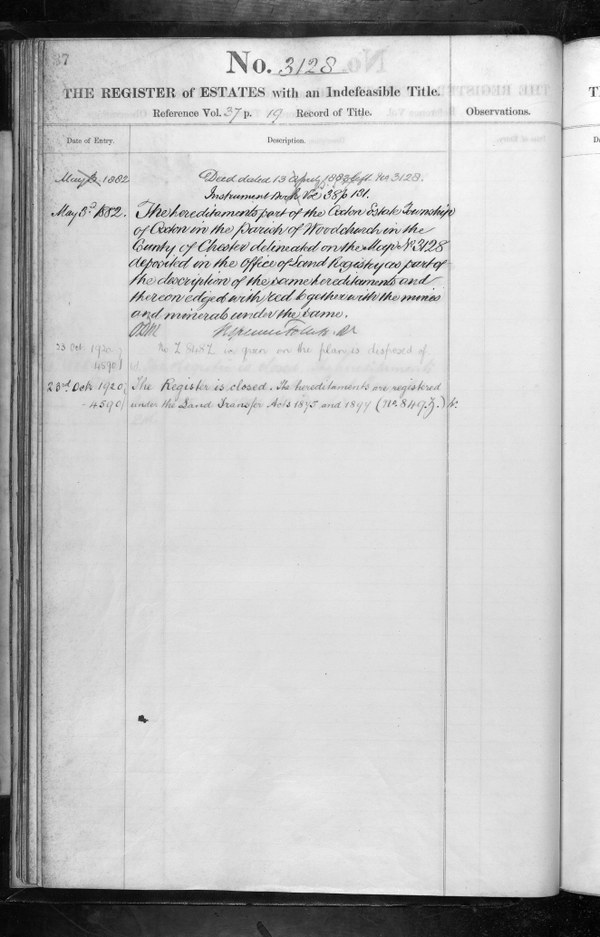 37
No. 3128
THE REGISTER of ESTATES with an Indefeasible Title.
Reference Vol. 37 p. 19 Record of Title.
Observations.
Date of Entry.
Description.
May 1882
Deed dated 13 April 1882 No 3128.
Instrument Book Vol 38 p 131.
May 3rd 1882.
The hereditaments part of the Oxton Estate Township
of Oxton in the Parish of Woodchurch in the
County of Chester delineated on the Map No 3128
deposited in the Office of Land Registry as part of
the description of the same hereditaments and
thereon edged with red together with the mines
and minerals under the same.
23 Oct 1920
4590
on the plan is disposed of
23rd Oct 1920
4590
The Register is closed. The hereditaments are registered
under the Land Transfer Acts 1875 and 1897